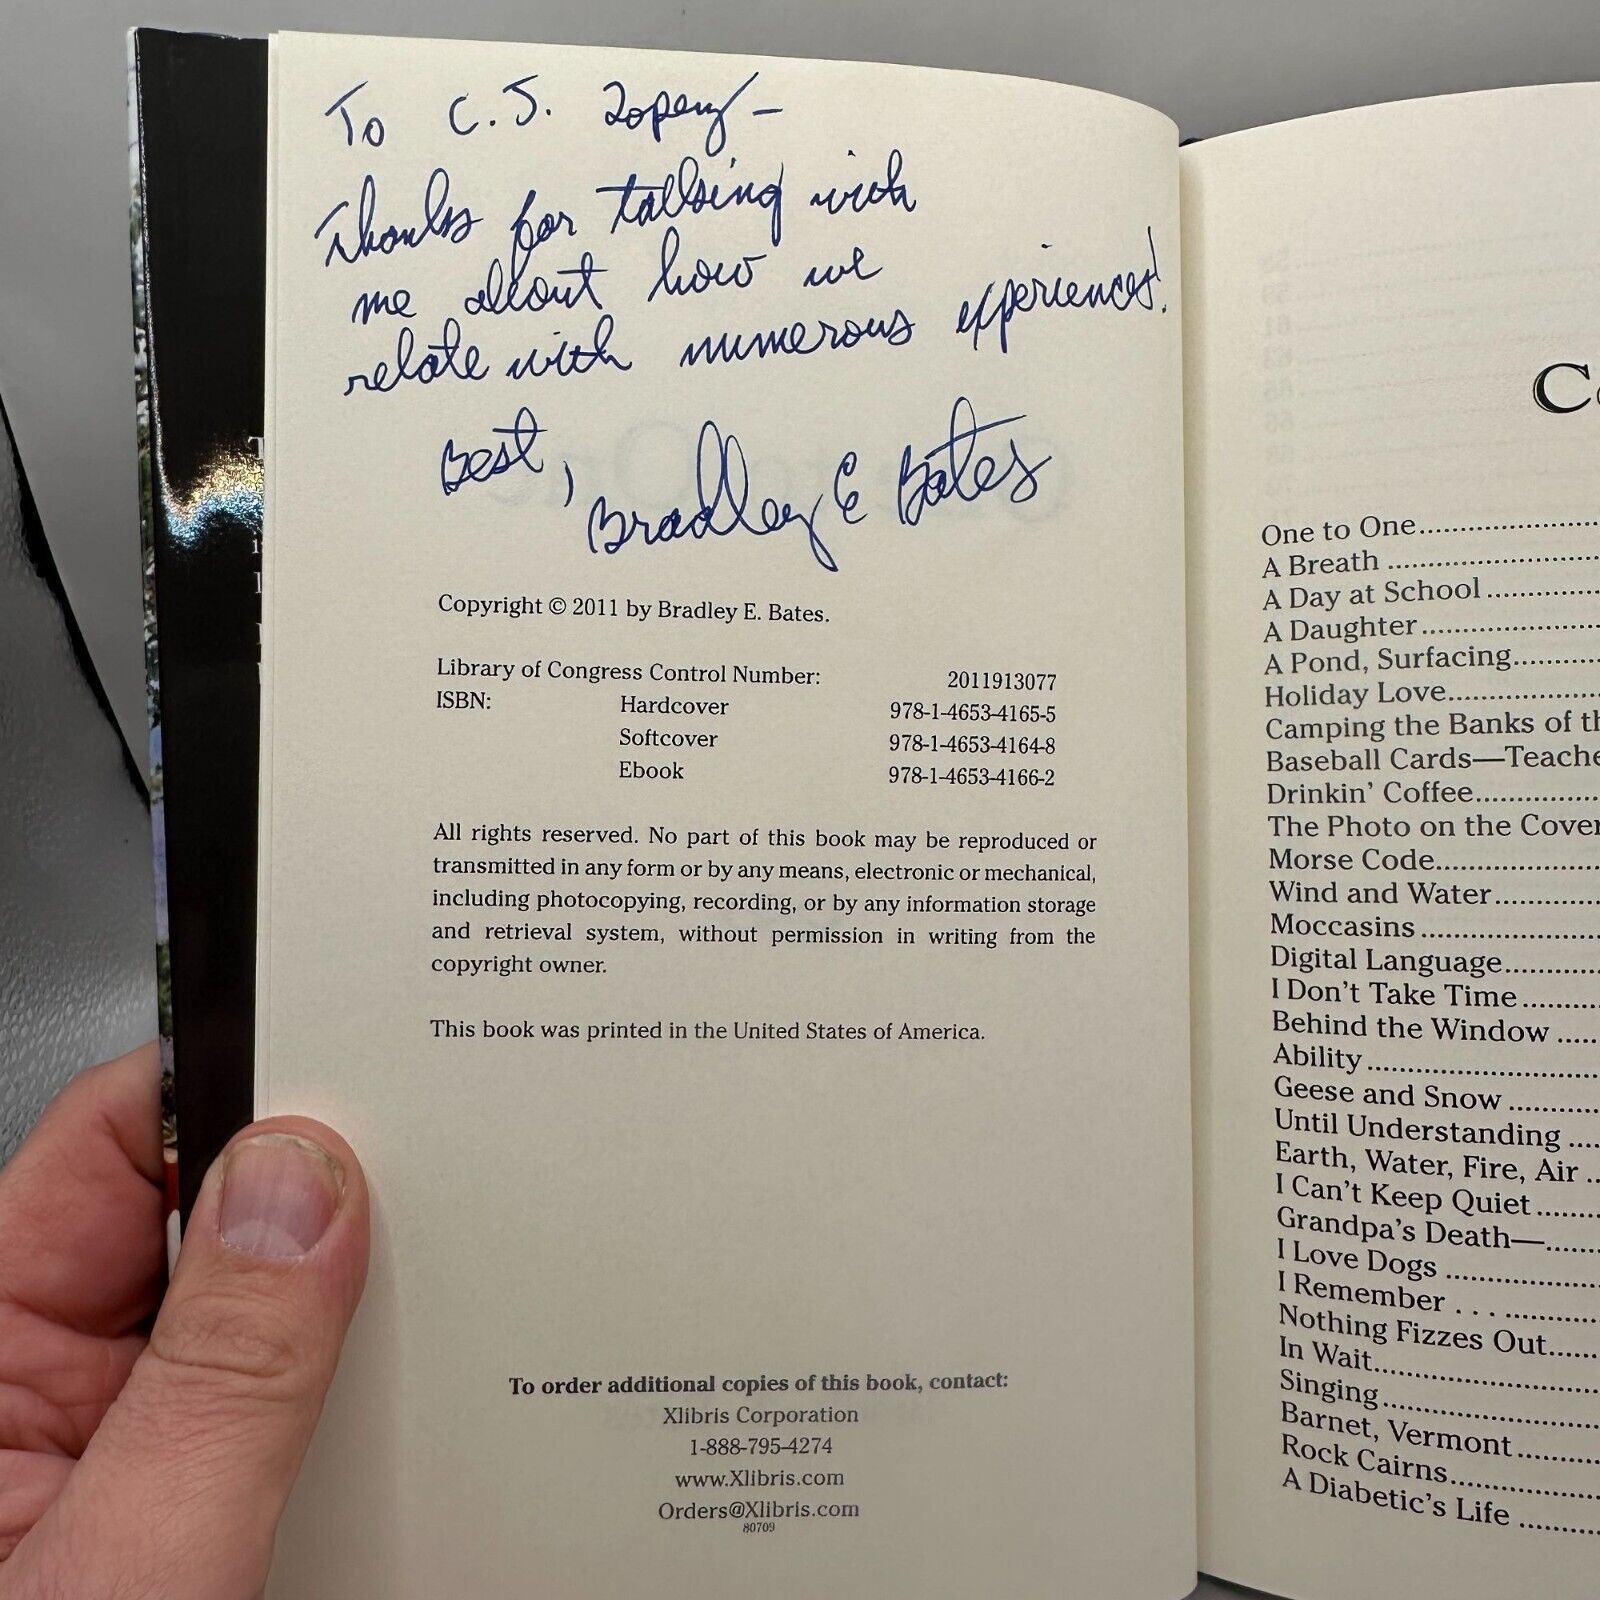 To C. J. Lopez —
Thanks for talking with
me about how we
relate with numerous experiences!
Best,
Bradley E Bates
Copyright © 2011 by Bradley E. Bates.
Library of Congress Control Number: 2011913077
ISBN: Hardcover 978-1-4653-4165-5
Softcover 978-1-4653-4164-8
Ebook 978-1-4653-4166-2
All rights reserved. No part of this book may be reproduced or
transmitted in any form or by any means, electronic or mechanical,
including photocopying, recording, or by any information storage
and retrieval system, without permission in writing from the
copyright owner.
This book was printed in the United States of America.
To order additional copies of this book, contact:
Xlibris Corporation
1-888-795-4274
www.Xlibris.com
Orders@Xlibris.com
80709
One to One
A Breath
A Day at School
A Daughter
A Pond, Surfacing
Holiday Love
Camping the Banks of
Baseball Cards—
Drinkin' Coffee
The Photo on the Cover
Morse Code
Wind and Water
Moccasins
Digital Language
I Don't Take Time
Behind the Window
Ability
Geese and Snow
Until Understanding
Earth, Water, Fire, Air
I Can't Keep Quiet
Grandpa's Death—
I Love Dogs
I Remember . . .
Nothing Fizzes Out
In Wait
Singing
Barnet, Vermont
Rock Cairns
A Diabetic's Life